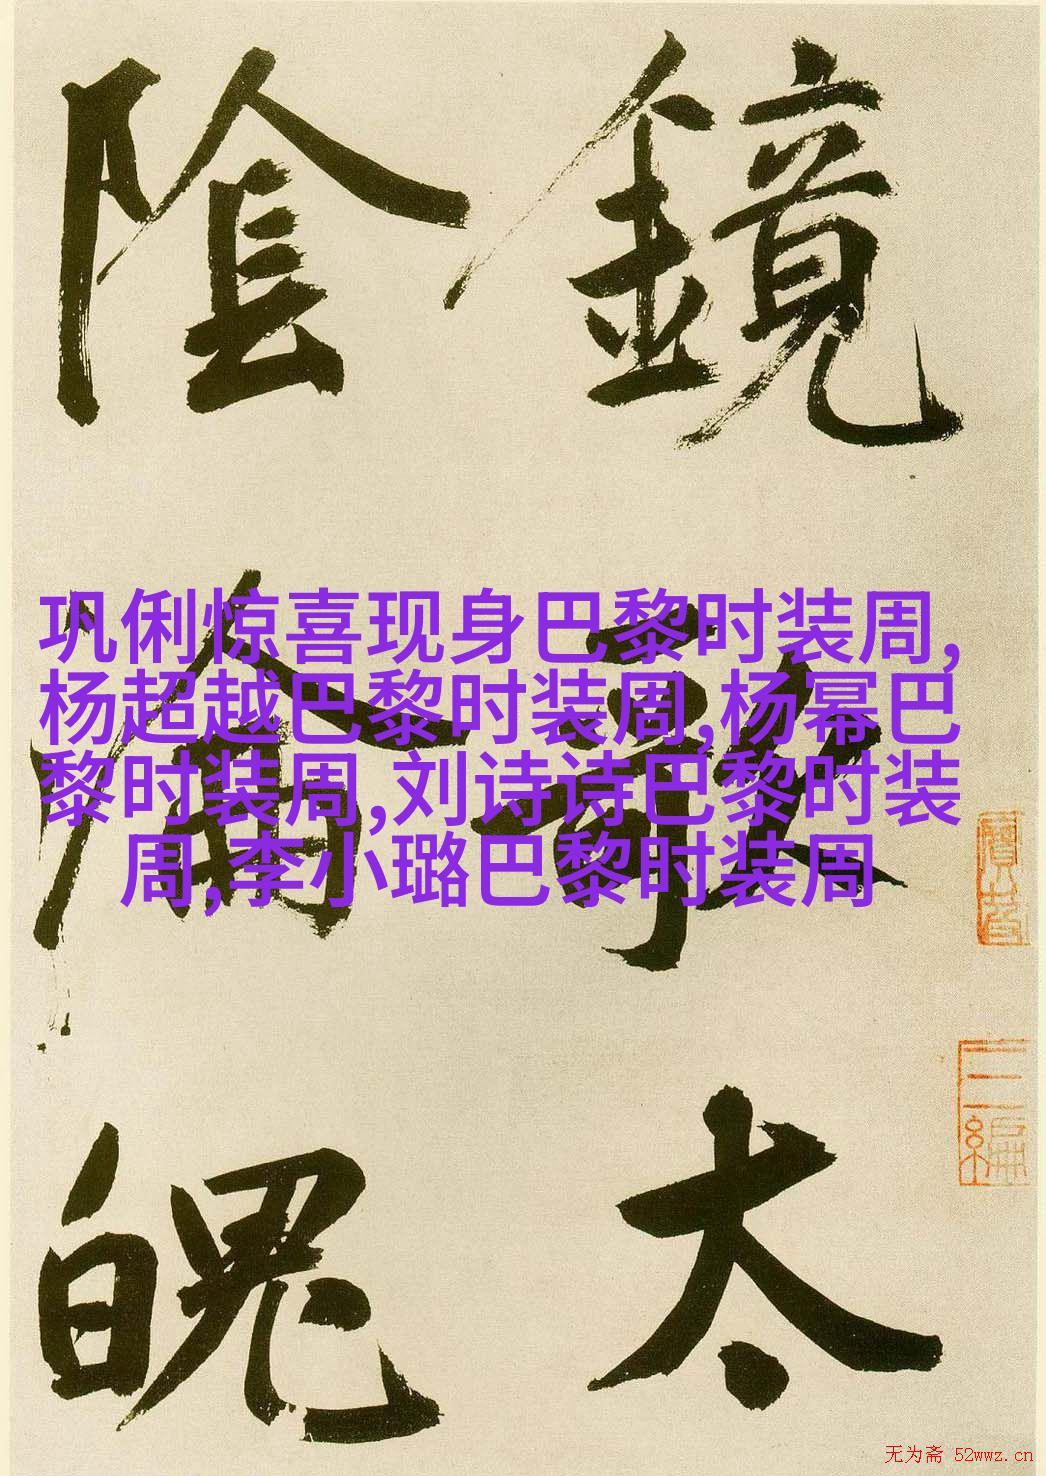 鏡
太
陰
魄
巩俐惊喜现身巴黎时装周,
杨超越巴黎时装周,杨幂巴
黎时装周,刘诗诗巴黎时装
周,李小璐巴黎时装周
无为斋 52wwz.cn